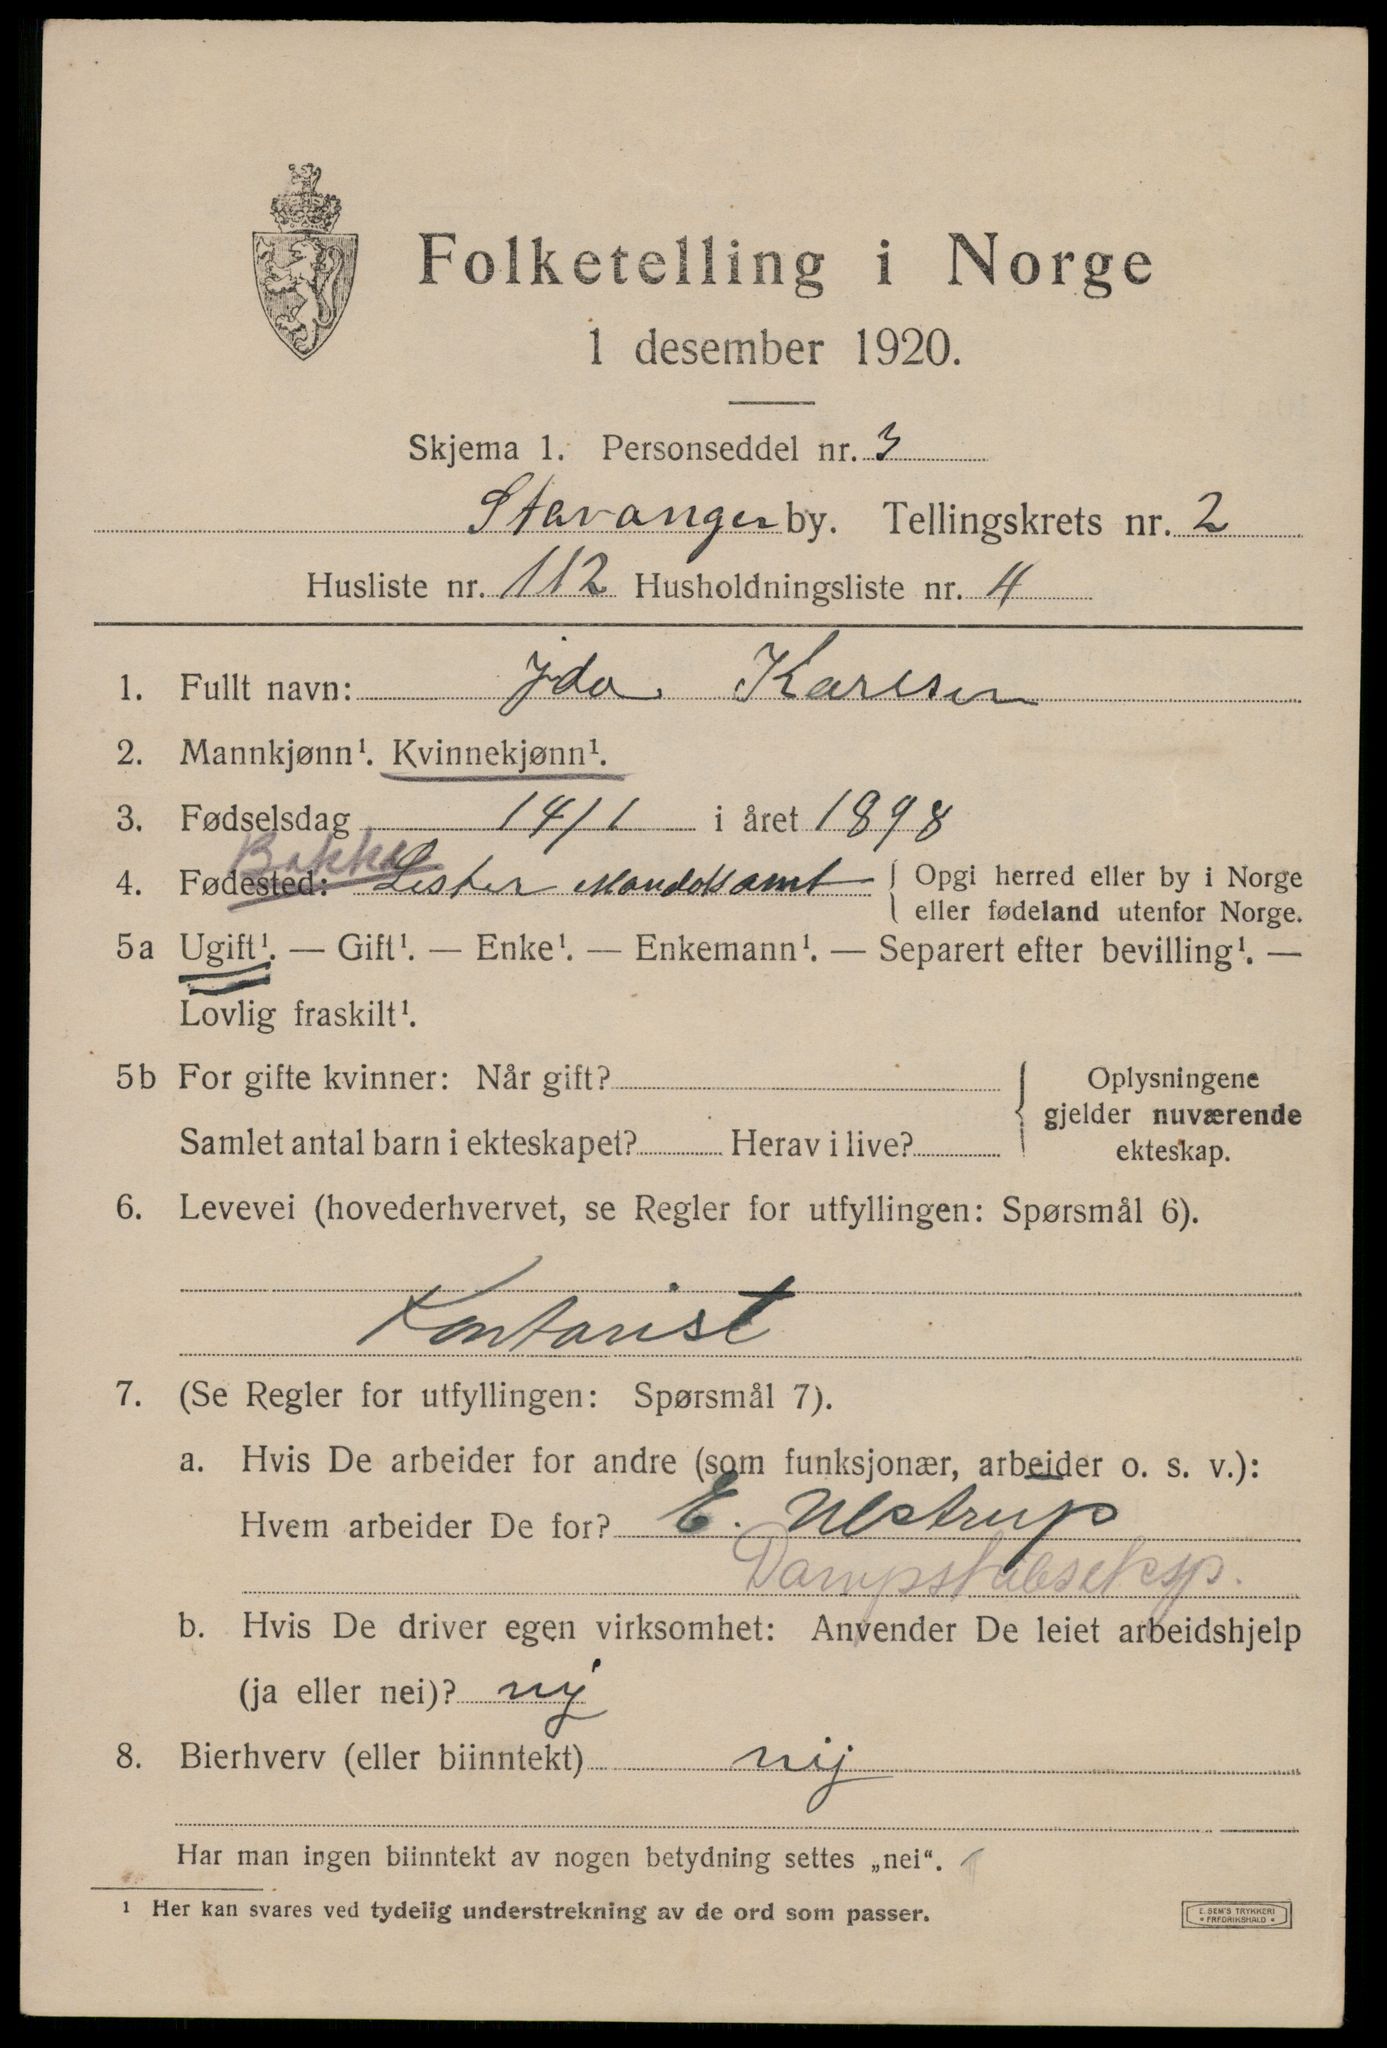 Folketelling i Norge
1 desember 1920.
Skjema 1. Personseddel nr. 3
Stavanger by. Tellingskrets nr. 2
Husliste nr. 112 Husholdningsliste nr. 4
1. Fullt navn: Ida Karlsen
2. Mannkjønn¹. Kvinnekjønn¹.
3. Fødselsdag 14/1 i året 1898
Bakke
4. Fødested: Lister Mandals amt { Opgi herred eller by i Norge
eller fødeland utenfor Norge.
5a Ugift¹. — Gift¹. — Enke¹. — Enkemann¹. — Separert efter bevilling¹. —
Lovlig fraskilt¹.
5b For gifte kvinner: Når gift? { Oplysningene
gjelder nuværende
Samlet antal barn i ekteskapet? Herav i live? ekteskap.
6. Levevei (hovederhvervet, se Regler for utfyllingen: Spørsmål 6).
Kontorist
7. (Se Regler for utfyllingen: Spørsmål 7).
a. Hvis De arbeider for andre (som funksjonær, arbeider o. s. v.):
Hvem arbeider De for? E. Ulstrup
Dampskibseksp.
b. Hvis De driver egen virksomhet: Anvender De leiet arbeidshjelp
(ja eller nei)? nij
8. Bierhverv (eller biinntekt) nij
Har man ingen biinntekt av nogen betydning settes „nei“.
¹ Her kan svares ved tydelig understrekning av de ord som passer.
E. SEM'S TRYKKERI
* FREDRIKSHALD *